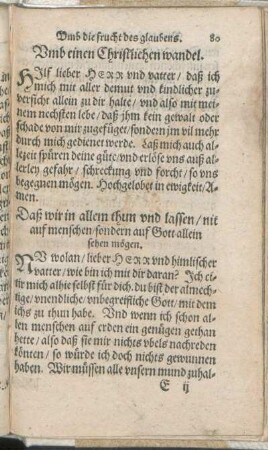 Vmb die frucht des glaubens. 80
Vmb einen Christlichen wandel.
HIlf lieber HERR vnd vatter/ daß ich
mich mit aller demut vnd kindlicher zu-
versicht allein zu dir halte/ vnd also mit mei-
nem nechsten lebe/ daß jhm kein gewalt oder
schade von mir zugefüget/ sondern jm vil mehr
durch mich gedienet werde. Laß mich auch al-
lezeit spüren deine güte/ vnd erlöse vns auß al-
lerley gefahr/ schreckung vnd forcht/ so vns
begegnen mögen. Hochgelobet in ewigkeit/ A-
men.
Daß wir in allem thun vnd lassen/ nit
auf menschen/ sondern auf Gott allein
sehen mögen.
NV wolan/ lieber HERR vnd himlischer
vatter/ wie bin ich mit dir daran? Ich
mir mich alhie selbst für dich. du bist der almech-
tige/ vnendliche/ vnbegreifliche Gott/ mit dem
ichs zu thun habe. Vnd wenn ich schon al-
len menschen auf erden ein genügen gethan
hette/ also daß sie mir nichts vbels nachreden
könten/ so würde ich doch nichts gewunnen
haben. Wir müssen alle vnsern mund zuhal-
E ij